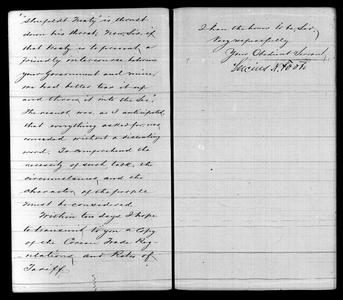 stupidest Treaty" is thrust
down his throat. Now, Sir, if
that Treaty is to prevent a
friendly intercourse between
your Government and mine,
we had better tear it up
and throw it into the Sea".
The result was, as I anticipated,
that everything asked for, was
conceded without a dissenting
word. To comprehend the
necessity of such talk, the
circumstances and the
character of the people
must be considered.
Within ten days I hope
to transmit to you a copy
of the Corean Trade Reg-
ulations, and Rates of
Tariff.
I have the honor to be, Sir,
Very respectfully
Your Obedient Servant,
Lucius H. Foote